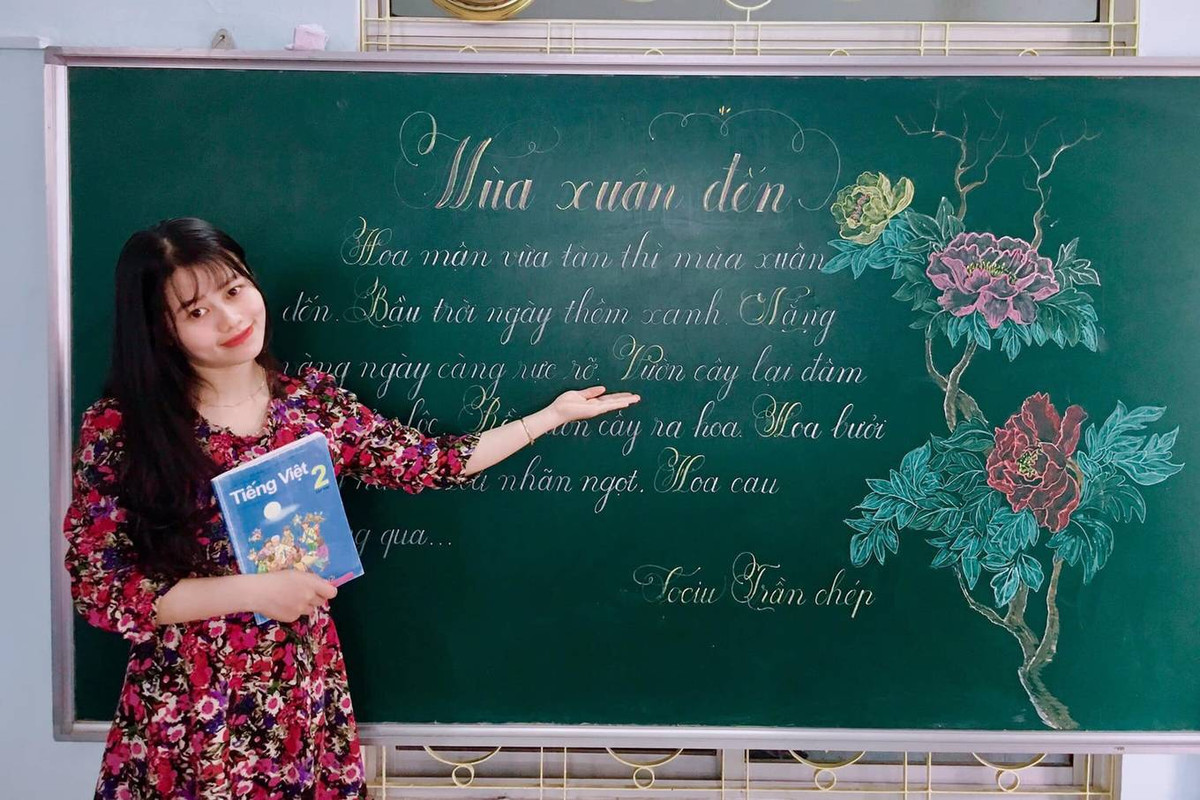 Mùa xuân đến
Hoa mận vừa tàn thì mùa xuân
đến. Bầu trời ngày thêm xanh. Nắng
vàng ngày càng rực rỡ. Vườn cây lại đâm
lộc. Rồi vườn cây ra hoa. Hoa bưởi
nhãn ngọt. Hoa cau
qua...
Tociu Trần chép
Tiếng Việt 2